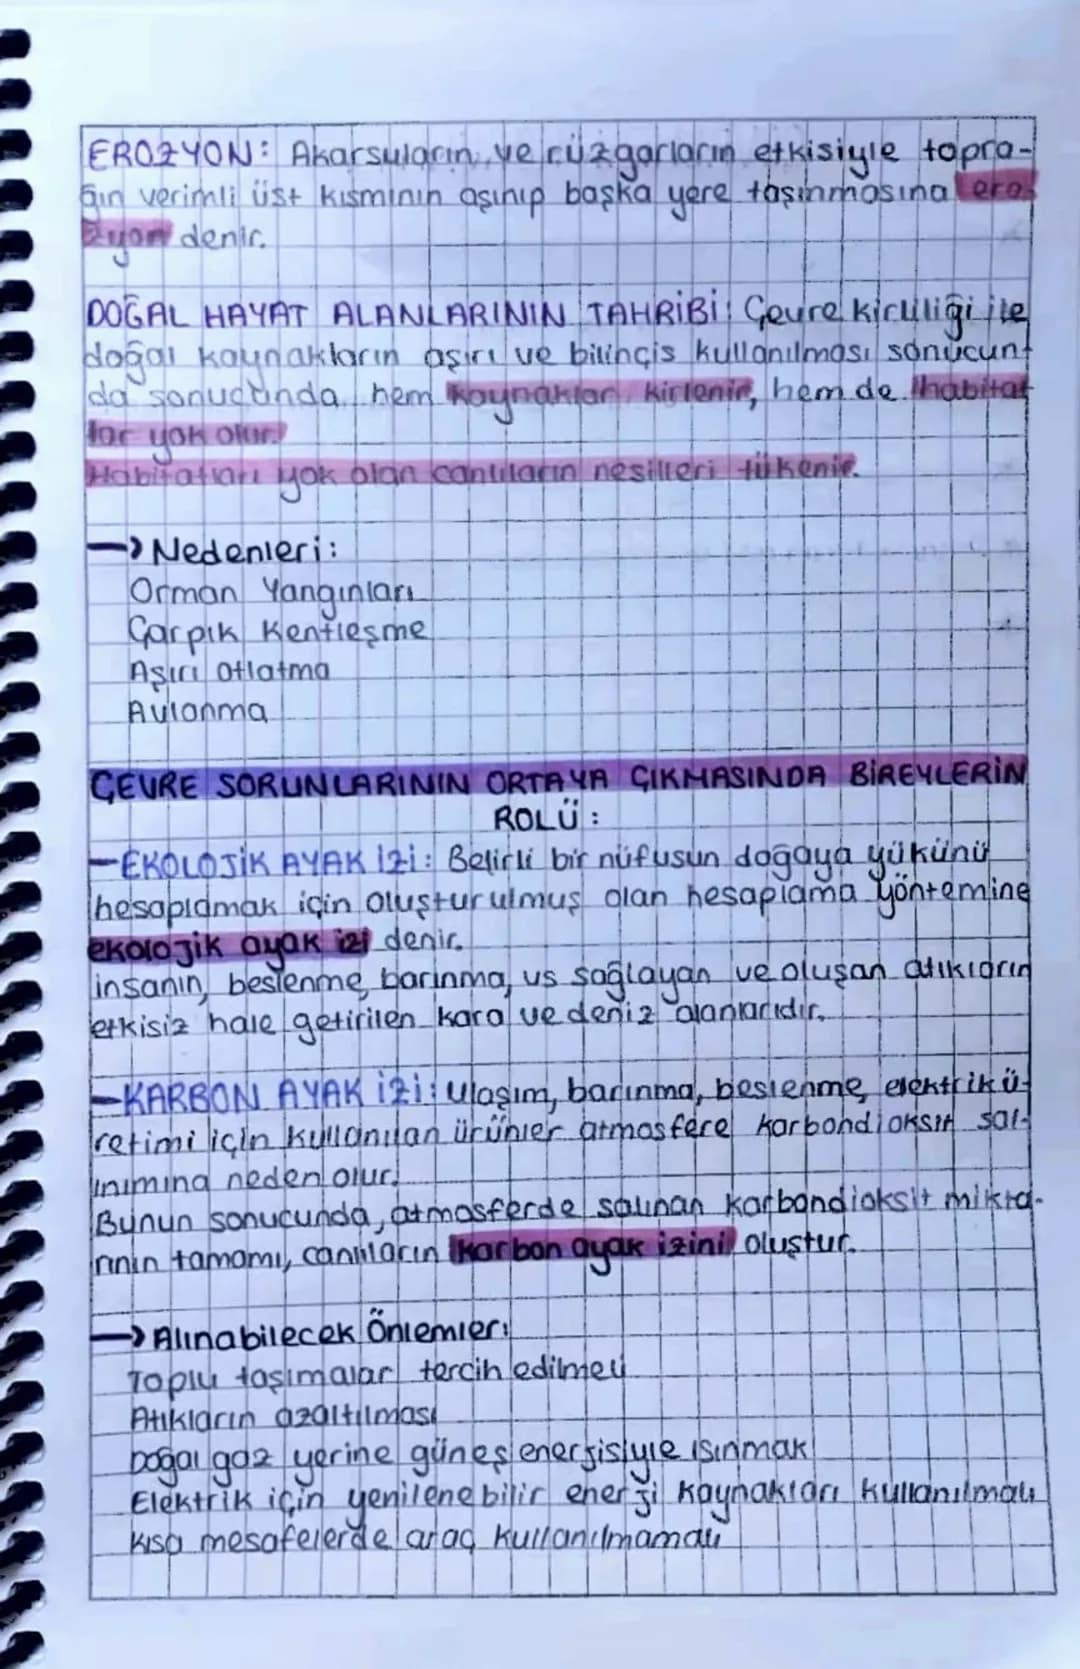 EROZYON: Akarsuların ve rüzgarların etkisiyle topra-
ğın verimli üst kısmının aşınıp başka yere taşınmasına ero-
zyon denir.
DOĞAL HAYAT ALANLARININ TAHRİBİ: Çevre kirliliği ile
doğal kaynakların aşırı ve bilinçis kullanılması sonucun-
da sonucunda hem kaynaklar kirlenir, hem de habitat
lar yok olur.
Habitatları yok olan canlıların nesilleri tükenir.
→ Nedenleri:
Orman Yangınları
Çarpık Kentleşme
Aşırı Otlatma
Avlanma
ÇEVRE SORUNLARININ ORTAYA ÇIKMASINDA BİREYLERİN
ROLÜ:
-EKOLOJİK AYAK İZİ: Belirli bir nüfusun doğaya yükünü
hesaplamak için oluşturulmuş olan hesaplama yöntemine
ekolojik ayak izi denir.
insanın, beslenme, barınma, vs sağlayan ve oluşan atıkların
etkisiz hale getirilen kara ve deniz alanlarıdır.
-KARBON AYAK İZİ: Ulaşım, barınma, beslenme, elektrik ü-
retimi için kullanılan ürünler atmosfere karbondioksit sal-
ınımına neden olur.
Bunun sonucunda, atmosferde salınan karbondioksit mikta-
rının tamamı, canlıların karbon ayak izini oluştur.
→ Alınabilecek Önlemler:
Toplu taşımalar tercih edilmeli
Atıkların azaltılması
Doğal gaz yerine güneş enerjisiyle ısınmak
Elektrik için yenilenebilir enerji kaynakları kullanılmalı
Kısa mesafelerde araç kullanılmamalı